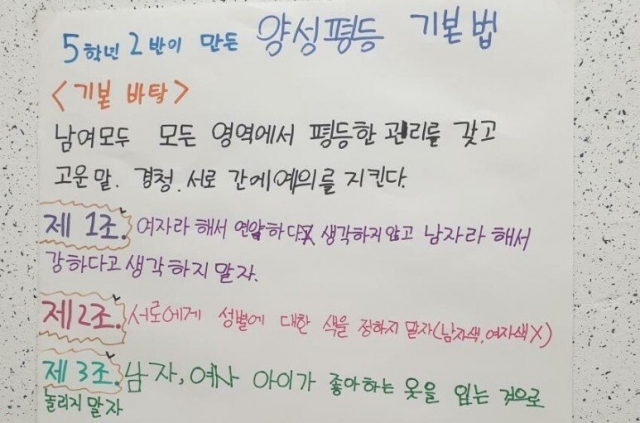 5학년 2반이 만든 양성평등 기본법
<기본 바탕>
남여모두 모든 영역에서 평등한 권리를 갖고
고운말. 경청. 서로 간에 예의를 지킨다.
제 1조. 여자라 해서 연약하다 생각하지 않고 남자라 해서
강하다고 생각하지 말자.
제 2조. 서로에게 성별에 대한 색을 정하지 말자(남자색, 여자색 X)
제 3조. 남자, 여자 아이가 좋아하는 옷을 입는 것으로
놀리지 말자